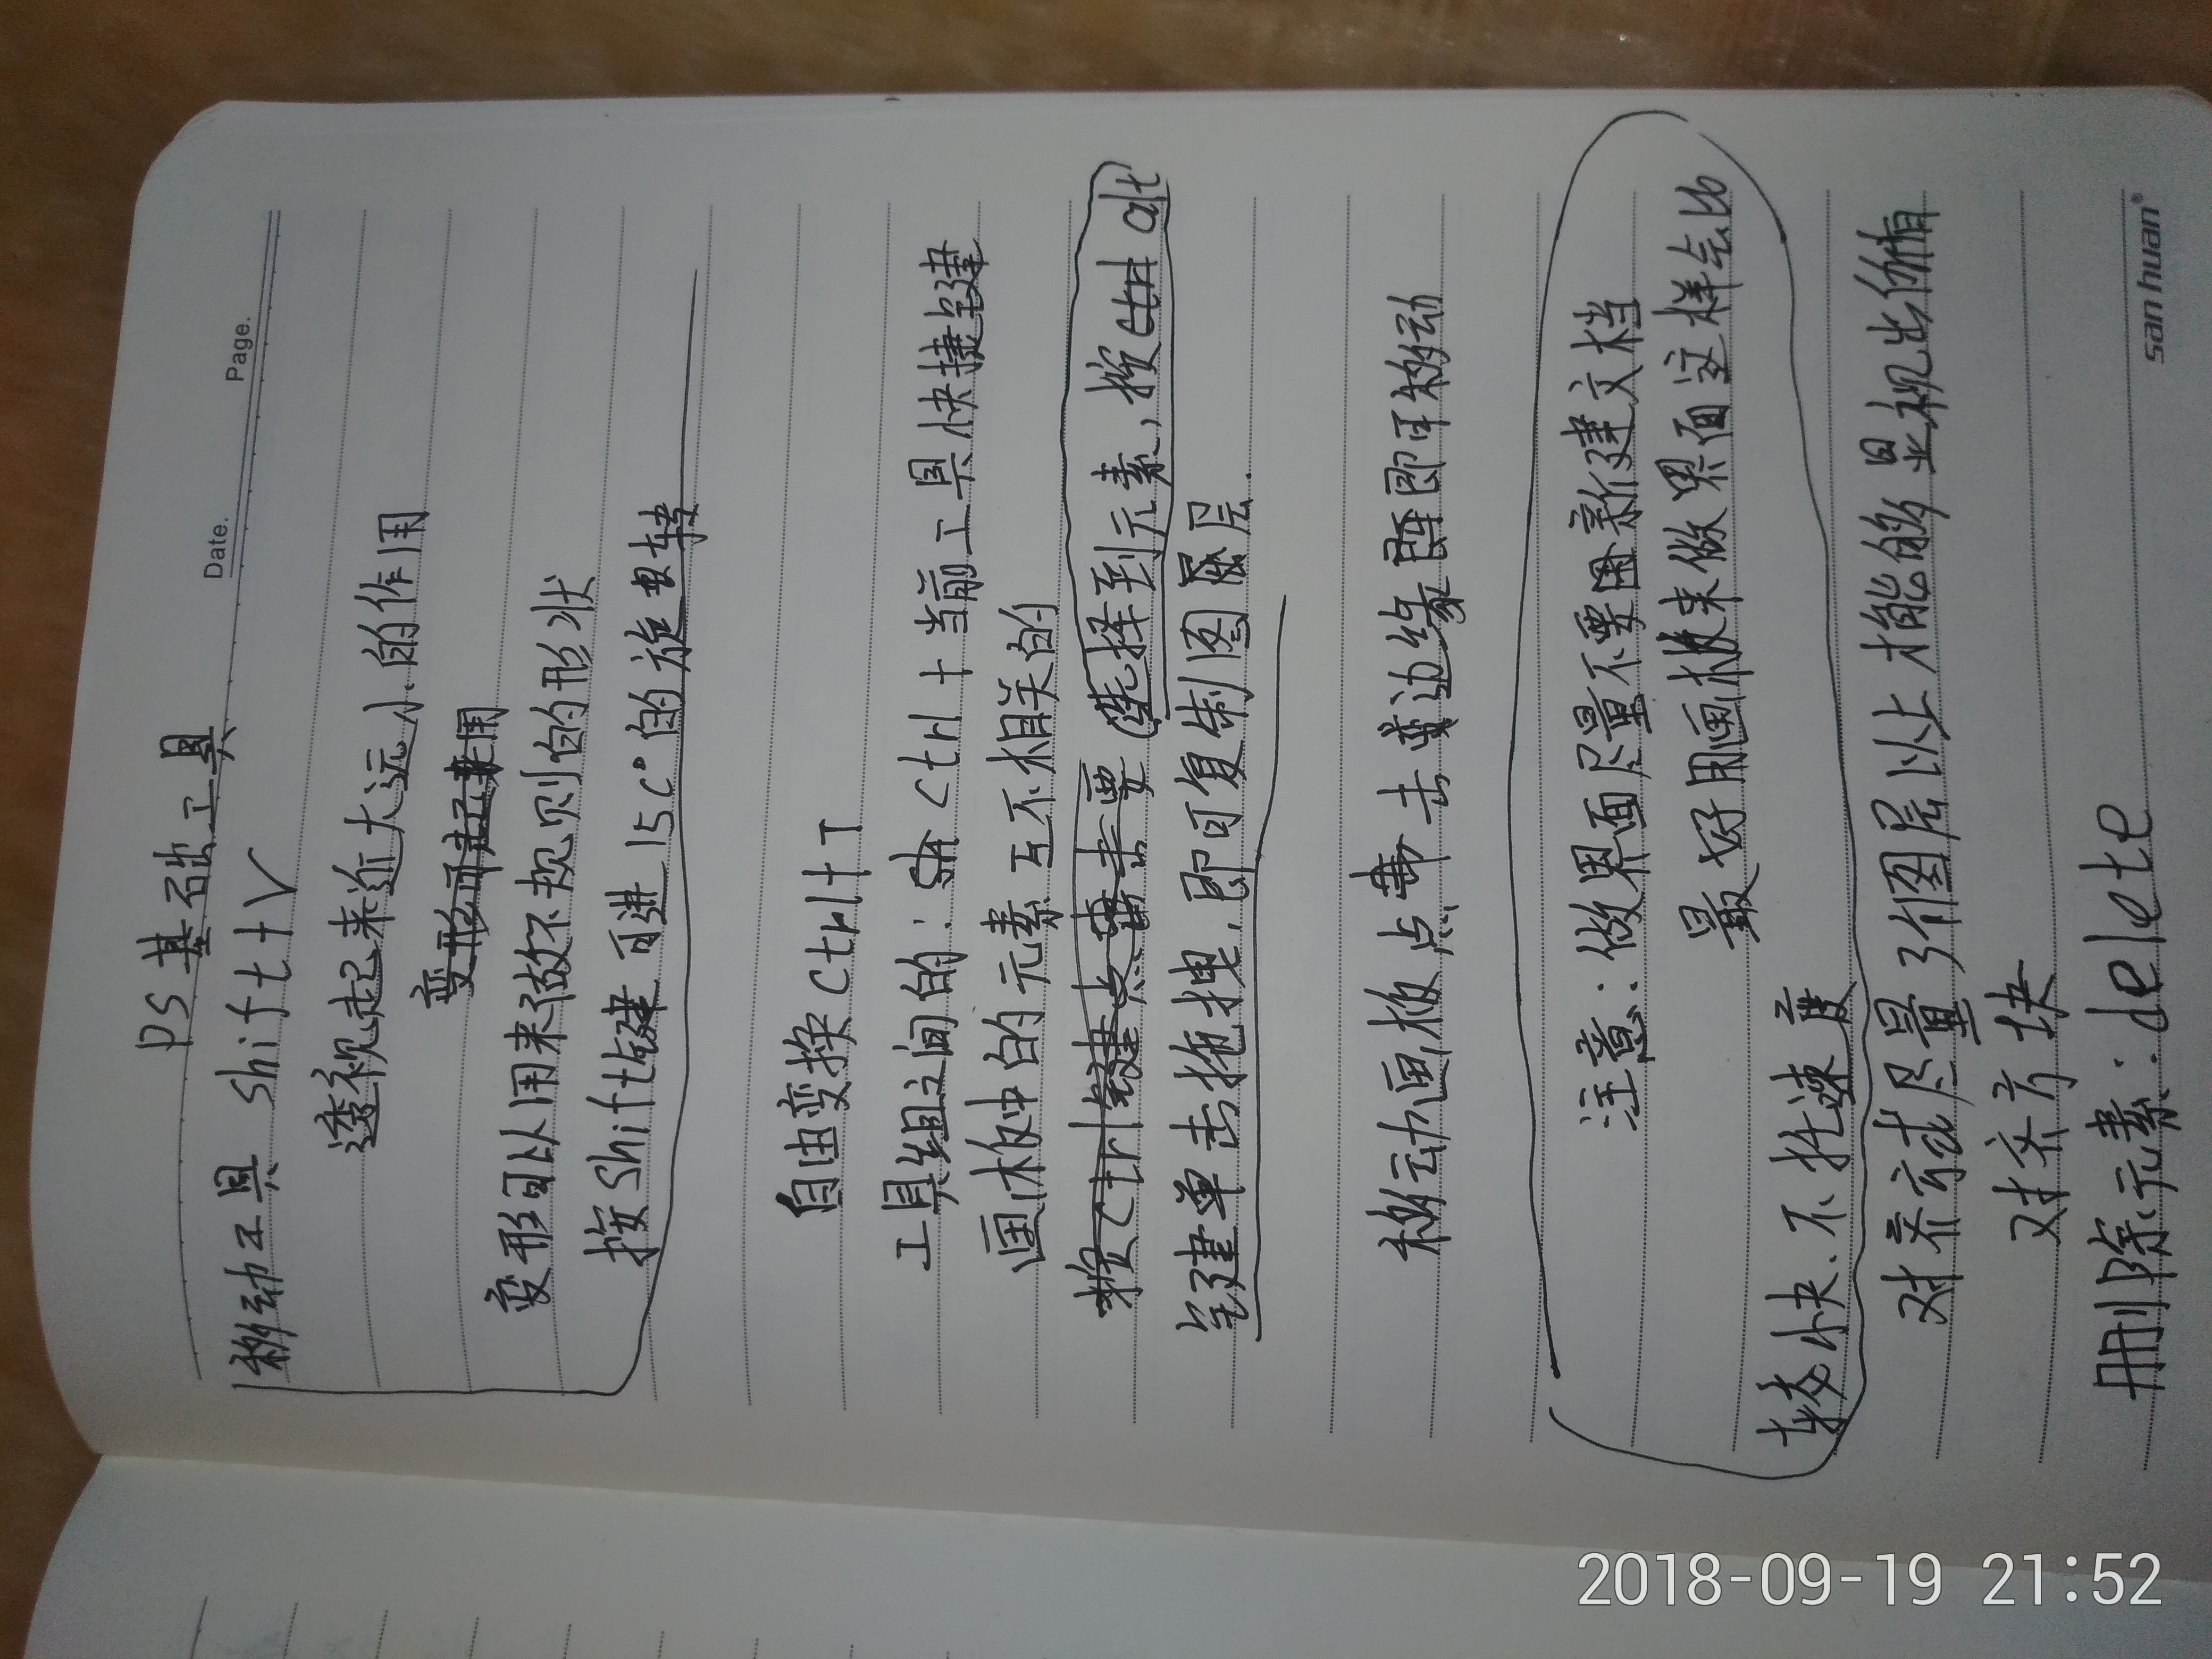 Date. Page.
PS基础工具
移动工具 Shift+V
透视起来近大远小的作用
变形可以用来做不规则的形状
按Shift键可进15c°的旋转
自由变换 Ctrl+T
工具组之间的: Ctrl+当前工具快捷键
画板中的元素互不相关的
要(选择到元素,按 alt
键单击拖拽,即可复制图层.
移动画板点击变边缘即可移动
注意:做界面尽量不要新建文档
最好用画板来做界面这样会比
较快、不托速度
对齐式尽量3个图层以上才能够显视出所有
对齐方块
删除元素:delete
sanhuan®
2018-09-19 21:52